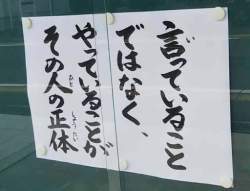 言っていること
ではなく、
やっていることが
その人の正体